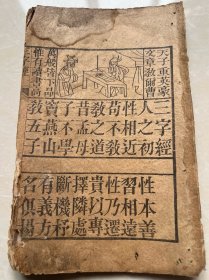 天子重英豪
文章教爾曹
萬般皆下品
惟有讀書高
三字經
人之初
性本善
性相近
習相遠
苟不教
性乃遷
教之道
貴以專
昔孟母
擇鄰處
子不學
斷機杼
竇燕山
有義方
教五子
名俱揚